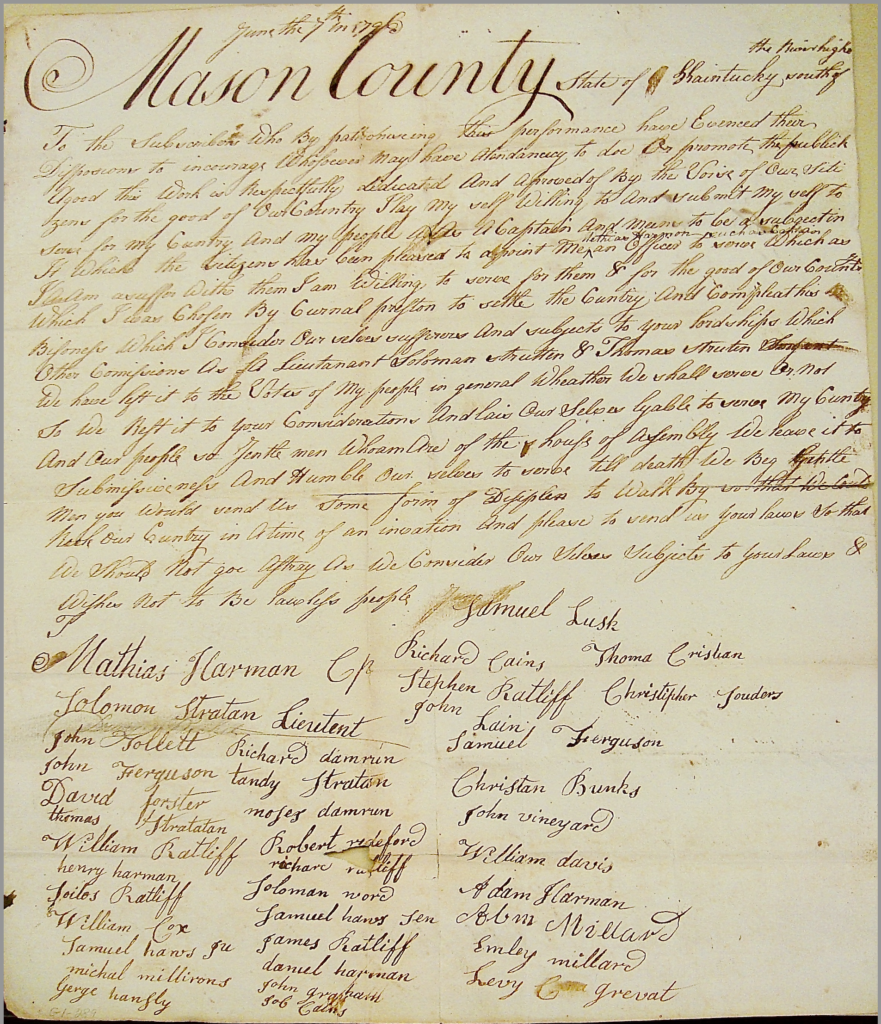 June the 7th in 1796
the River high
Mason County State of Khaintucky south of
To the Subscribers Who By patroneceing this performance have Evenced their
Disposions to incourage Whosoever May have atendancy to doe Or promote the publick
good this Work is Respectfully dedicated And Aproved of By the Voise of Our Siti
zens for the good of Our Country I lay my self Willing to And submit My self to
serve for my Cuntry And my people As A Captain And Mum to be a subject in
Mathias Harmon such as Captain
It Which the Sitizens has Ben pleased to apoint Me an Officer to serve Which as
I Am a suffer With them I am Willing to serve for them & for the good of Our County
Which I was Chosen By Curnal preston to settle the Cuntry And Compleat his
Bisoness Which I Consider Our selves sufferers And subjects to your lordships Which
Other Comissions As of A Lieutanant Soloman strutten & Thomas struten
We have left it to the Votes of My people in general Wheather We shall serve Or not
So We Reft it to your Considerations And lais Our Selves lyable to serve My Cuntry
And Our people so Jentle men Whom Are of the house of Assembly We leave it to
Submissiveness And Humble Our selves to serve till death We Beg Gentle
Men you Would send Us Some form of Dissplen to Walk By so that We Could
Our Cuntry in A time of an invation And please to send us your laws So that
We Should Not goe Astray As We Consider Our Selves Subjects to your Laws &
Wishes Not to Be lawless people
Samuel Lusk
Mathias Harman Cp
Richard Cains Thoma Cristian
Stephen Ratliff Christipher Souders
Solomon Stratan Lieutent
John Lain
Samuel Ferguson
John Tollett Richard damrun
John Ferguson tandy Stratan
Christan Bunks
David forster moses damrun
John vineyard
thomas Stratatan
William Ratliff Robert redeford
William davis
henry harman richard ratliff
Soilos Ratliff Soloman word
Adam Harman
William Cox Samuel haws Sen
Abm Millard
Samuel haws Ju James Ratliff
Emley millard
michal millirons daniel harman
Levy grevat
Gerge hansly John graham
Job Cains